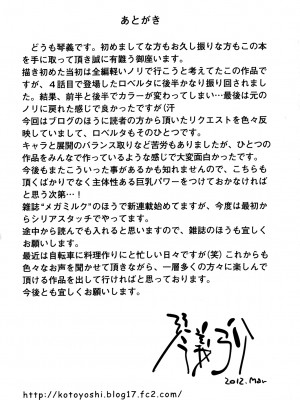 あとがき
どうも琴義です。初めましてな方もお久し振りな方もこの本
を手に取って頂き誠に有難う御座います。
描き初めた当初は全編軽いノリで行こうと考えてたこの作品で
すが、４話目で登場したロベルタに後半かなり振り回されまし
た。結果、前半と後半でカラーが変わってしまい…最後は元の
ノリに戻れた感じで良かったですが(汗
今回はブログのほうに読者の方から頂いたリクエストを色々反
映していまして、ロベルタもそのひとつです。
キャラと展開のバランス取りなど苦労もありましたが、ひとつの
作品をみんなで作っているような感じで大変面白かったです。
今後もまたこういった事があるかも知れませんので、こちらも
頂くばかりでなく主体性ある巨乳パワーをつけておかなければ
と思う次第…！
雑誌“メガミルク”のほうで新連載始めてますが、今度は最初
からシリアスタッチでやってます。
途中から読んでも入れると思いますので、雑誌のほうも宜しく
お願いします。
最近は自転車に料理作りにと忙しい日々ですが(笑) これからも
色々なお声を聞かせて頂きながら、一層多くの方々に楽しんで
頂ける作品を出して行ければと思っております。
今後とも宜しくお願いします。
琴義弓介
2012.Mar
http://kotoyoshi.blog17.fc2.com/